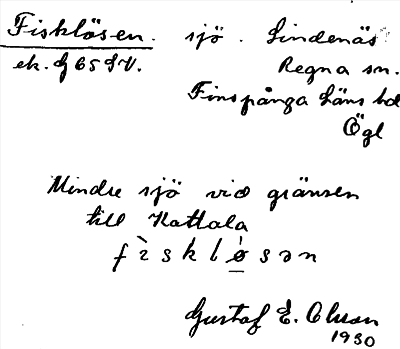 Fisklösen. sjö. Lindenäs
ek. J 65 SV. Regna sn.
Finspånga läns hd
Ögl
Mindre sjö vid gränsen
till Kattala
f ì s k l ǿ s ə n
Gustaf E. Olsson
1930